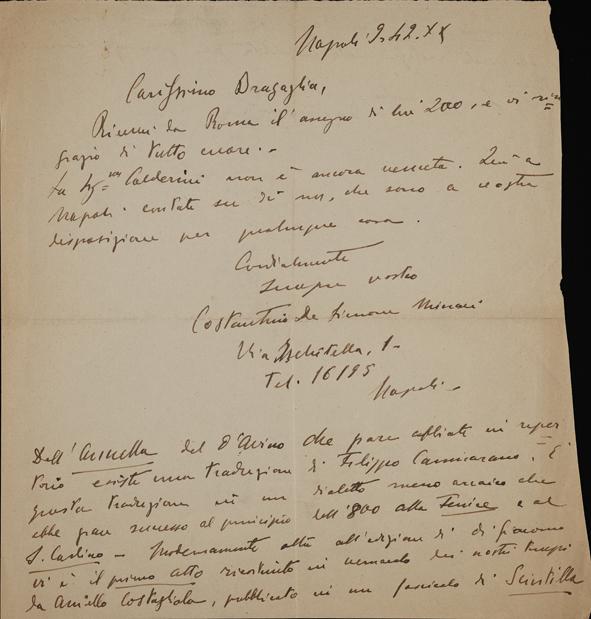 Napoli 9.42.XX
Carissimo Bragaglia,
Ricevei da Roma l'assegno di lire 200, e vi rin=
grazio di tutto cuore. -
La Sig.na Calderini non è ancora venuta. Qui a
Napoli contate su di me, che sono a vostra
disposizione per qualunque cosa.
Cordialmente
sempre vostro
Costantino De Simone Minaci
Via Ischitella, 1-
Tel. 16195
Napoli -
Dell'Annella del D'Avino che pare vogliate in reper
torio esiste una traduzione di Filippo Cammarano. E'
questa traduzione in un dialetto meno arcaico che
ebbe gran successo al principio dell'800 alla Fenice e al
S. Carlino - Modernamente oltre all'edizione di di Giacomo
vi è il primo atto ricostruito in vernacolo dei nostri tempi
da Aniello Costagliola, pubblicato in un fascicolo di Scintilla